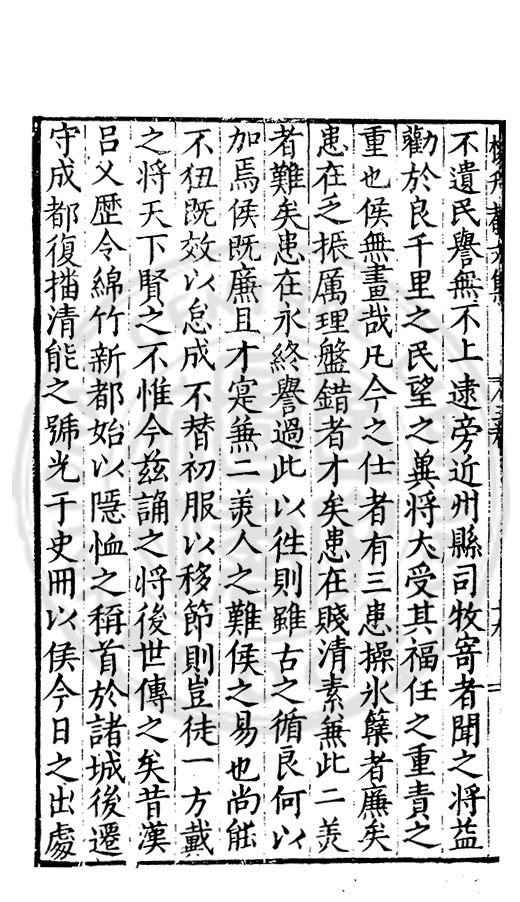 不遺民譽無不上逮旁近州縣司牧寄者聞之將益
勸於良千里之民望之冀將大受其福任之重責之
重也侯無畫哉凡今之仕者有三患操氷糵者廉矣
患在乏振厲理盤錯者才矣患在賤清素兼此二羙
者難矣患在永終譽過此以徃則雖古之循良何以
加焉侯既廉且才寔兼二羙人之難侯之易也尚能
不狃既效以怠成不朁初服以移節則豈徒一方戴
之將天下賢之不惟今兹誦之將後世傳之矣昔漢
吕乂歷令綿竹新都始以隱恤之稱首於諸城後遷
守成都復播清能之號光于史冊以侯今日之出處